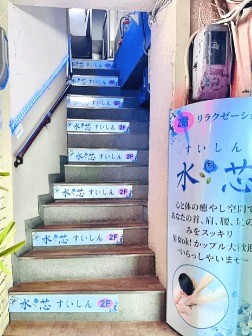 水芯 すいしん 2F
水芯 すいしん 2F
水芯 すいしん 2F
水芯 すいしん 2F
水芯 すいしん 2F
水芯 すいしん 2F
水芯 すいしん 2F
2階 リラクゼーショ
すいしん
水芯
心と体の癒やし空間で
あなたの首、肩、腰、足の
みをスッキリ
男女ok! カップル大歓迎
~いらっしゃいませ~